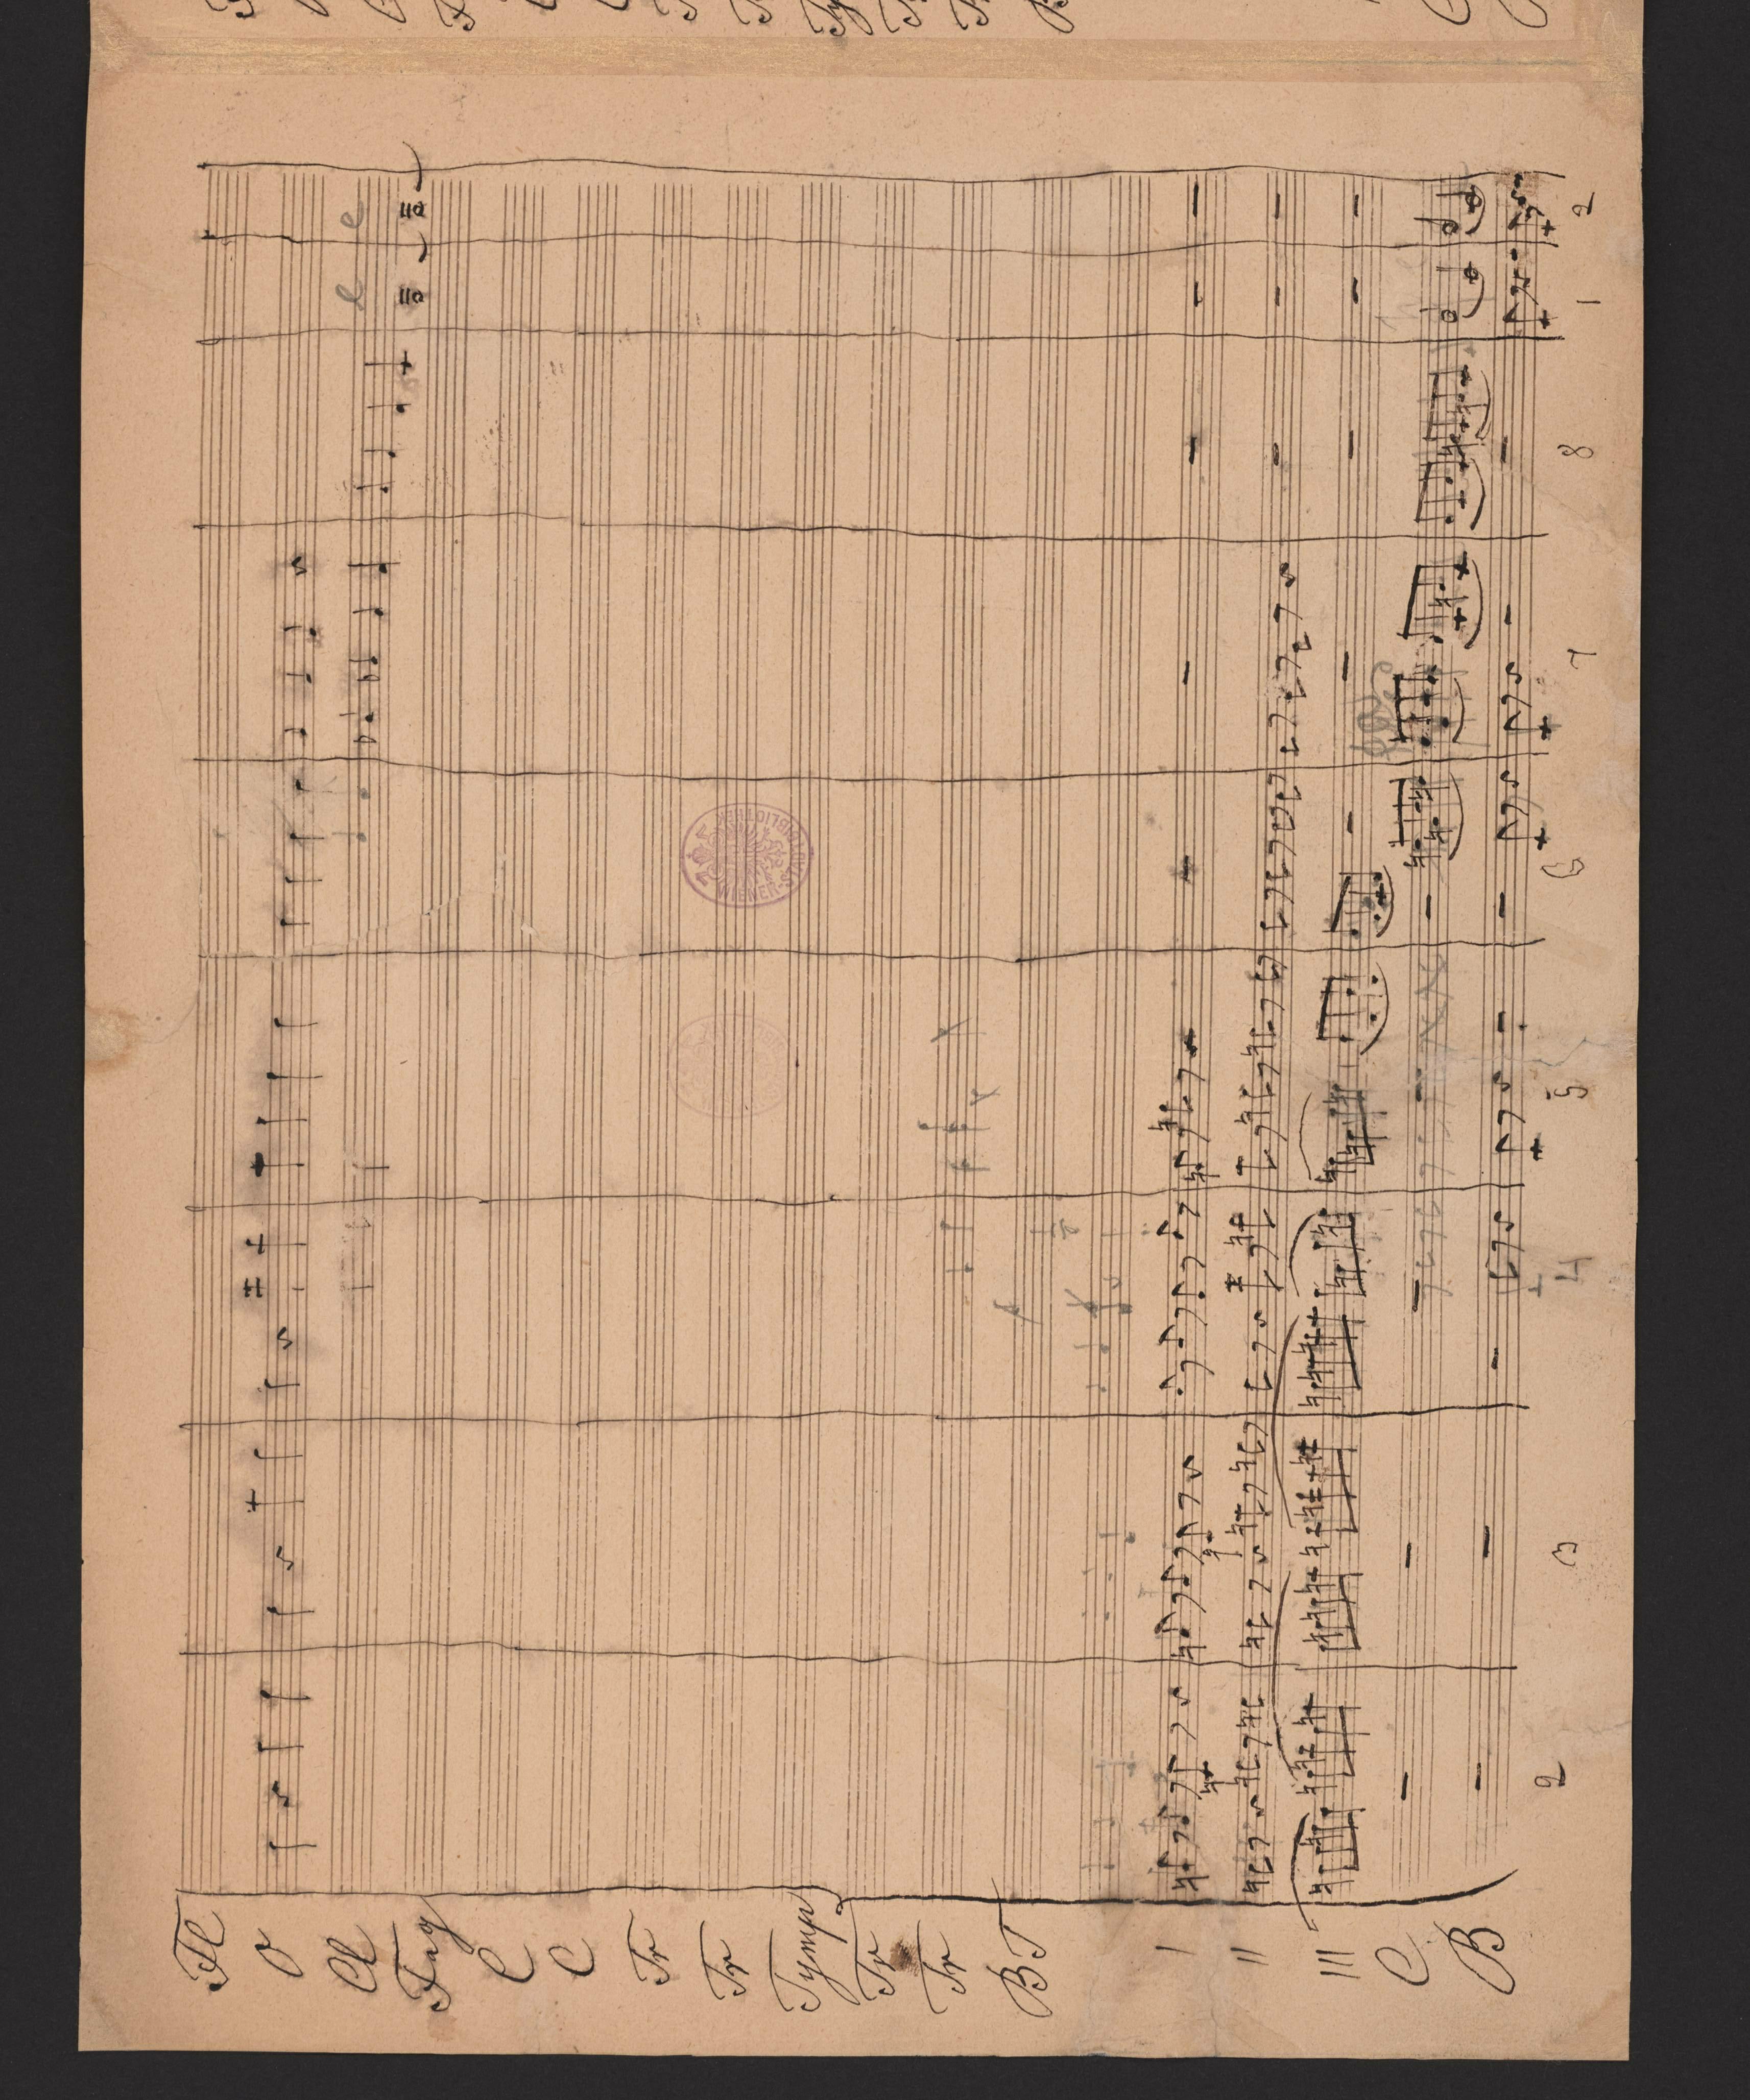 Fl
O
Cl
Fag
C
C
Tr
Tr
Tymp
Tr
Tr
BT
I
II
III
C
B
2 3 4 5 6 7 8 1 2